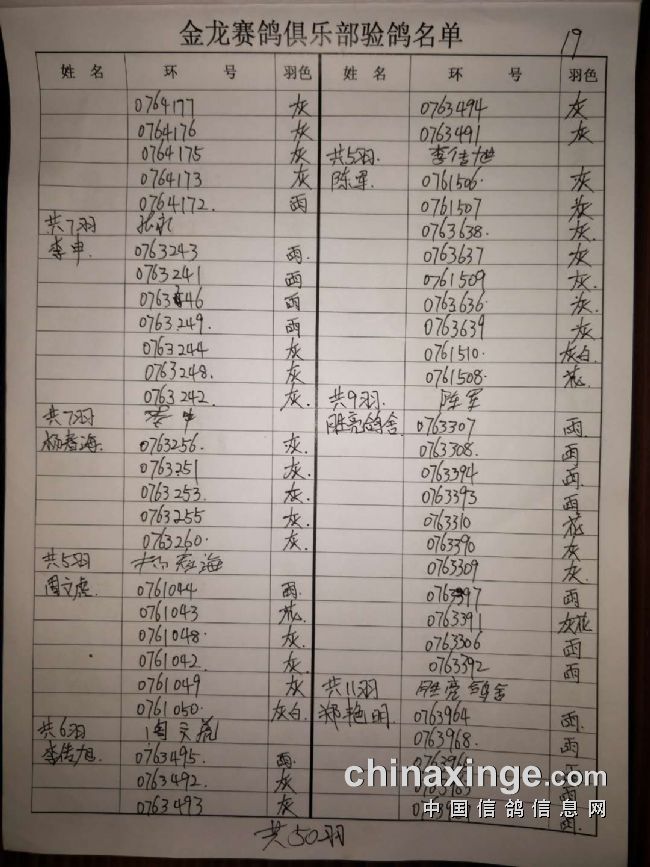 金龙赛鸽俱乐部验鸽名单
19
姓 名 环 号 羽色
0764177 灰
0764176 灰
0764175 灰
0764173 灰
0764172. 雨
共7羽
李申 0763243 雨.
0763241 雨
雨
0763249. 雨
0763244 灰
0763248. 灰
0763242 灰.
共7羽 李申
0763256. 灰.
0763251 灰.
0763253. 灰.
0763255 灰.
0763260. 灰.
共5羽
周文虎. 0761044 雨.
0761043 花.
0761048. 灰.
0761042 灰.
0761049 灰
0761050. 灰白.
共6羽 周文虎
李传旭. 0763495. 雨
0763492. 灰
0763493 灰
姓 名 环 号 羽色
0763494 灰
0763491 灰.
共5羽. 李传旭
陈军. 0761506. 灰
0761507 灰
0763638. 灰.
0763637 灰
0761509 灰.
0763636. 灰.
0763639 灰
0761510. 灰白.
0761508. 花.
共9羽. 陈军
胜亮鸽舍 0763307 雨.
0763308. 雨
0763394 雨.
0763393 雨
0763310 花
0763390 灰
0763309 灰.
0763397 雨
0763391 灰花
0763306 雨
0763392 雨
共11羽 胜亮鸽舍
郑艳明. 0763964 雨.
0763968. 雨
雨.
共50羽
chinaxinge.com
中国信鸽信息网